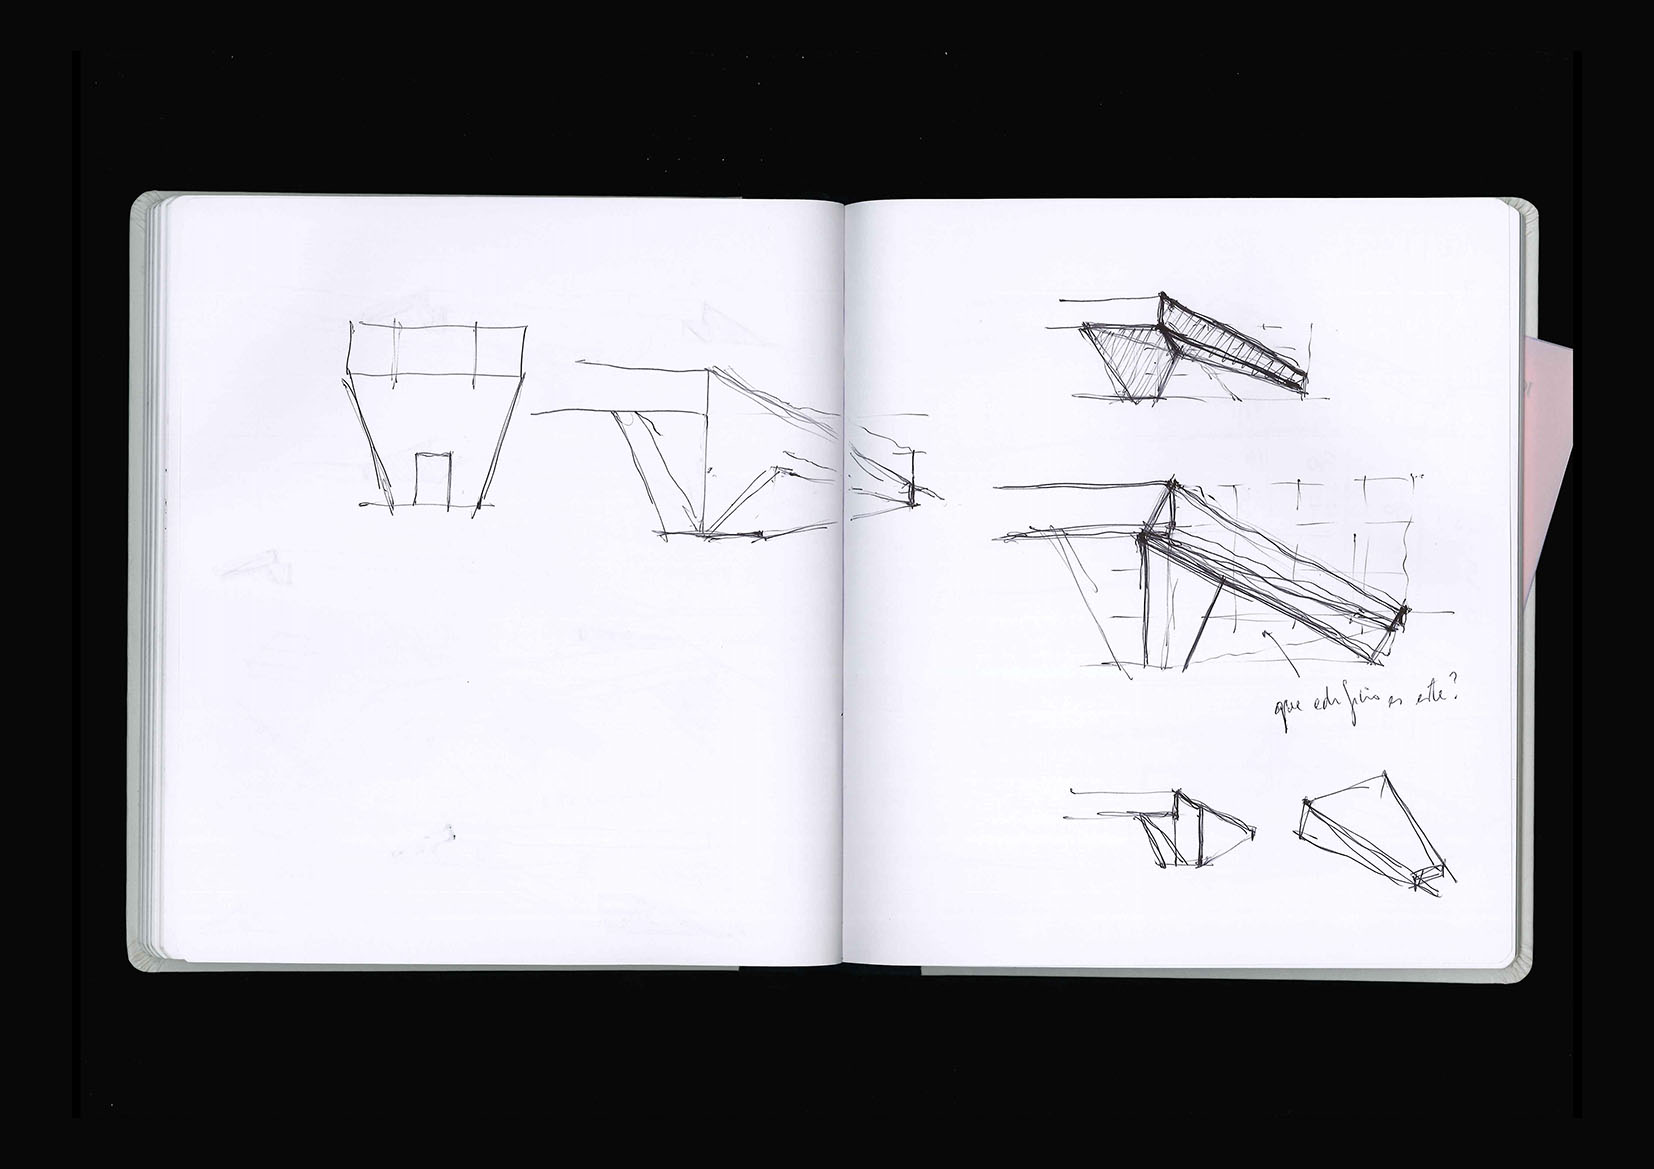 que edificio es este?